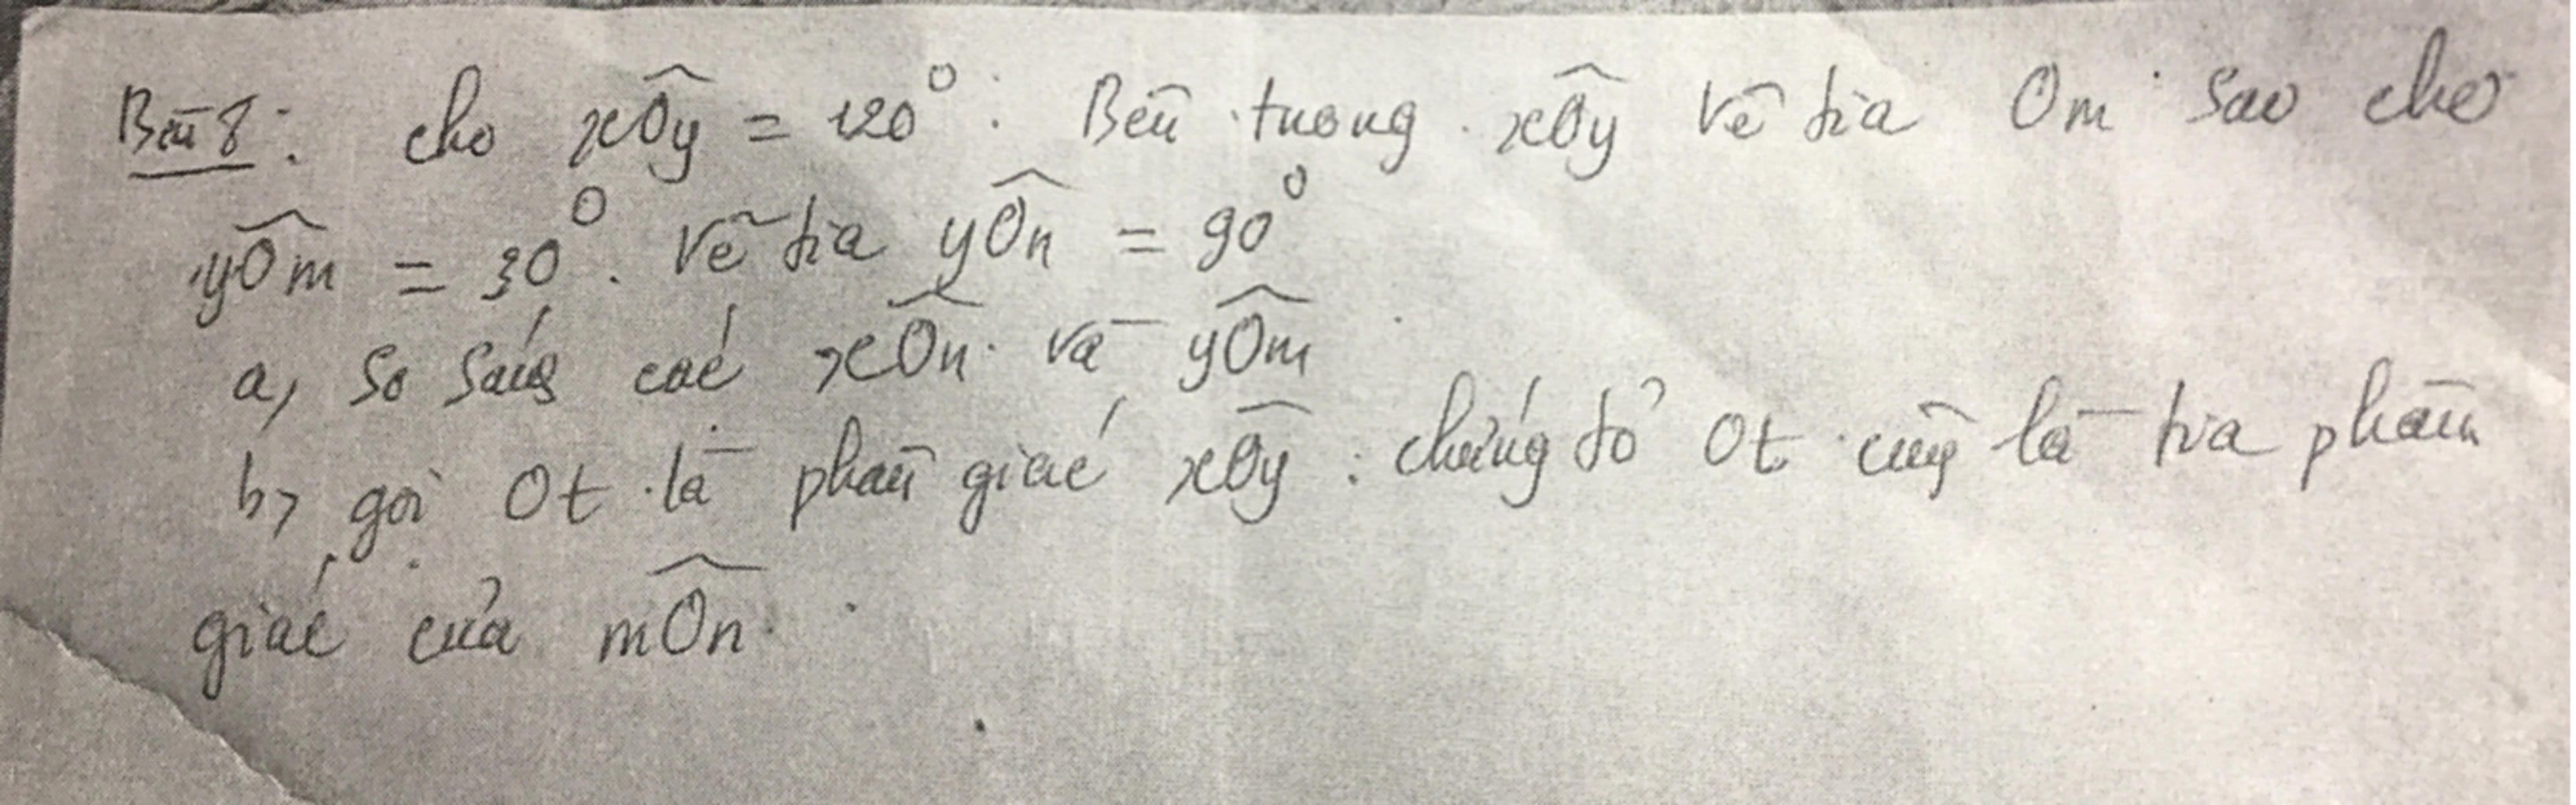 Bài 8: cho xÔy = 120°: Bên trong xÔy vẽ tia Om sao cho
yÔm = 30°. Vẽ tia yÔn = 90°
a, So sáng các xÔn và yÔm
b, gọi Ot là phân giác xÔy : chứng tỏ Ot cũng là tia phân
giác của mÔn.